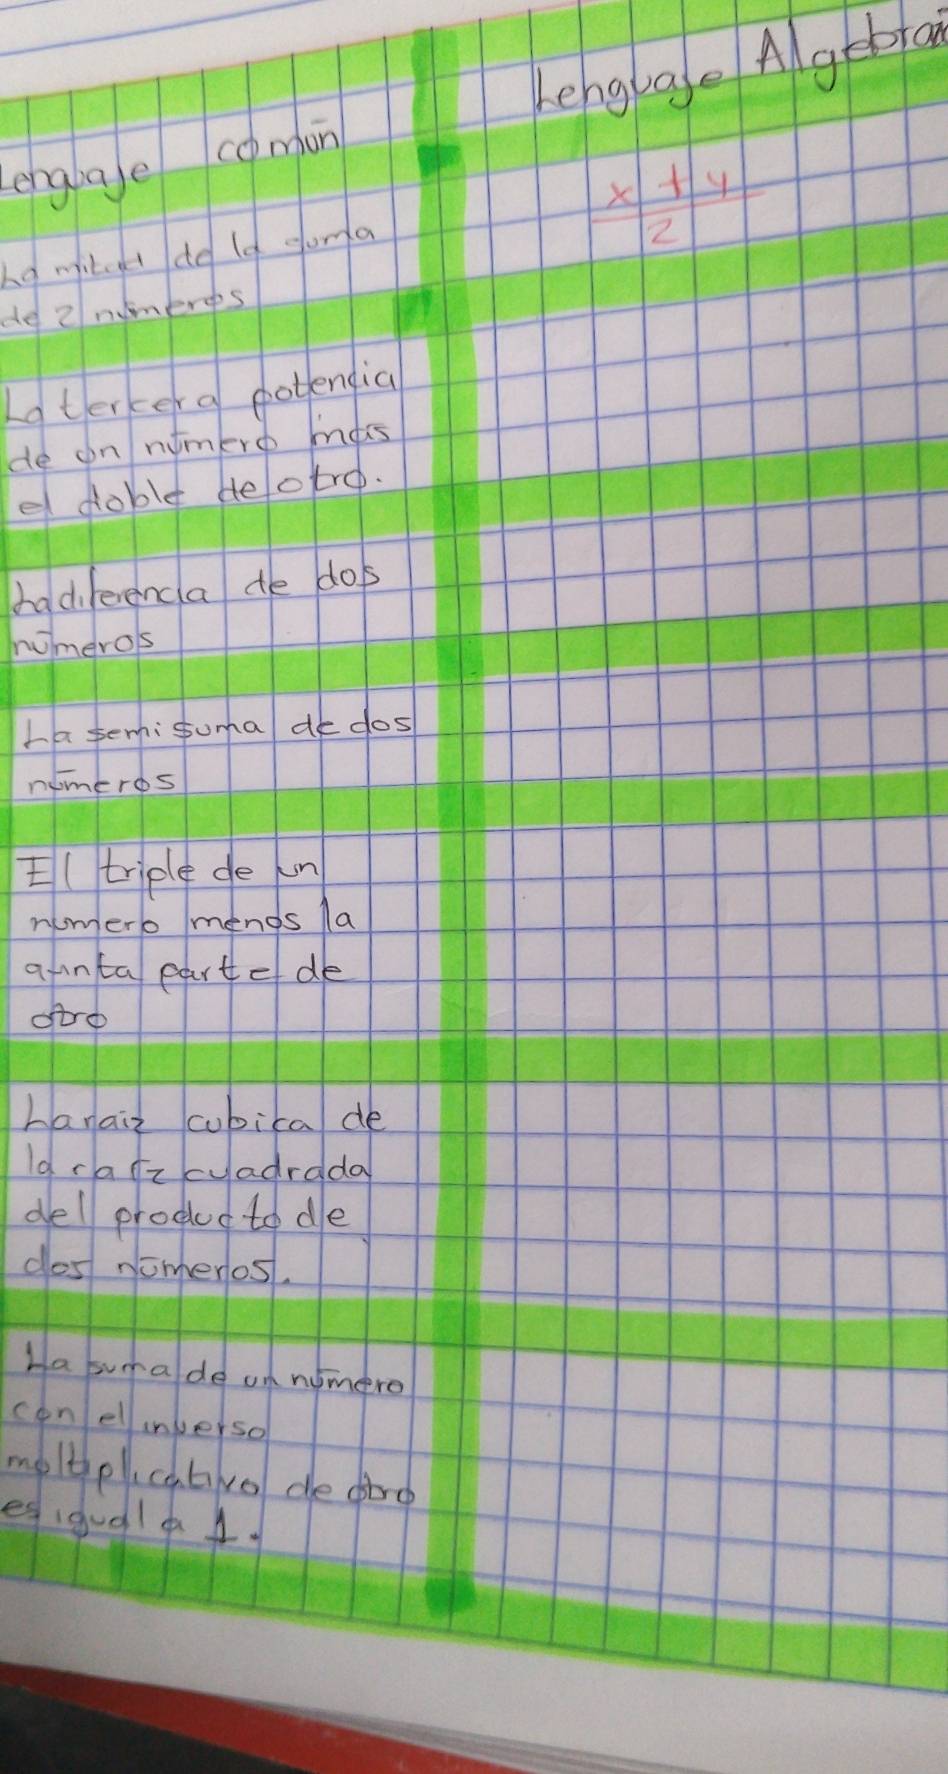 Lenguaje común
Lenguaje Algebrai
La mitad de la suma
de 2 números
x + y
2
La tercera potencia
de un número más
el doble de otro.
La diferencia de dos
números
La semisuma de dos
números
El triple de un
numero menos la
quinta parte de
otro
La raiz cubica de
la raíz cuadrada
del producto de
dos números.
La suma de un número
con el inverso
multiplicativo de otro
es igual a 1.